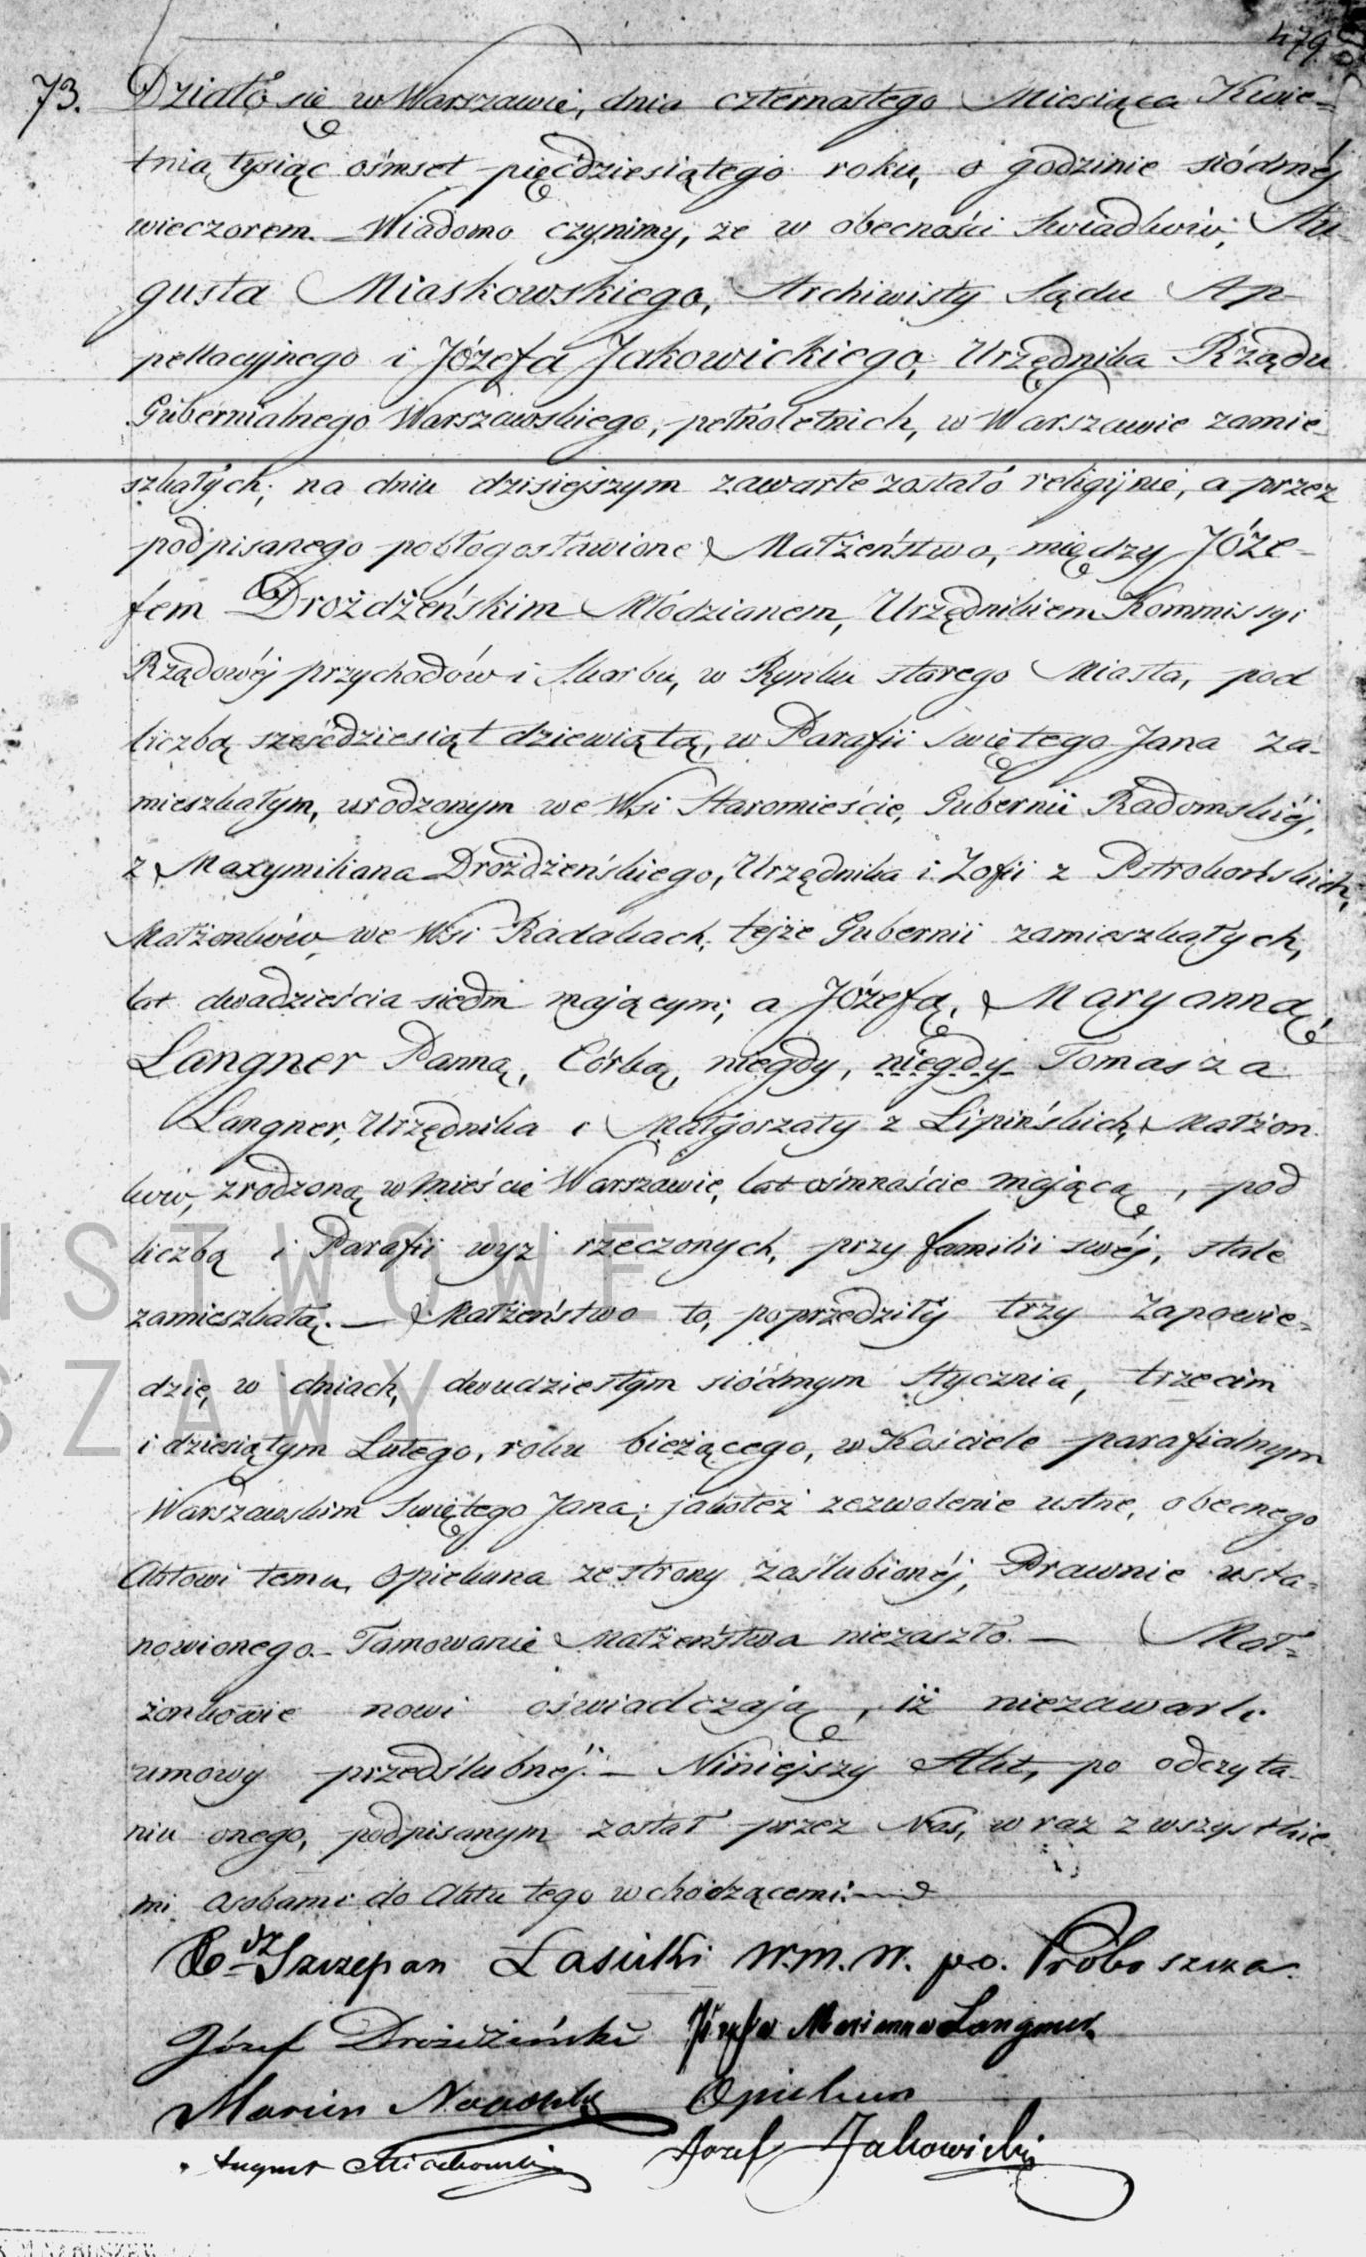 479
73. Działo się w Warszawie, dnia czternastego Miesiąca Kwie-
tnia tysiąc ośmset pięćdziesiątego roku, o godzinie siódméj
wieczorem. Wiadomo czynimy, że w obecności Świadków, Au-
gusta Miaskowskiego, Archiwisty Sądu Ap-
pellacyjnego i Józefa Jakowickiego, Urzędnika Rządu
Gubernialnego Warszawskiego, pełnoletnich, w Warszawie zamie-
szkałych; na dniu dzisiejszym zawarte zostało religijnie, a przez
podpisanego pobłogosławione Małżeństwo, między Józe-
fem Drożdżeńskim Młodzianem, Urzędnikiem Kommissyi
Rządowéj przychodów i Skarbu, w Rynku starego Miasta, pod
liczbą sześćdziesiąt dziewiątą, w Parafii Świętego Jana za-
mieszkałym, urodzonym we Wsi Staromieście, Gubernii Radomskiéj,
z Maxymiliana Drożdżeńskiego, Urzędnika i Zofii z Pstrokońskich,
Małżonków, we Wsi Radakach, tejże Gubernii zamieszkałych,
lat dwadzieścia siedm mającym; a Józefą, Maryanną,
Langner Panną, Córką, niegdy, niegdy Tomasza
Langner, Urzędnika i Małgorzaty z Lipińskich, Małżon-
ków, zrodzoną w mieście Warszawie, lat ośmnaście mającą, pod
liczbą i Parafii wyż rzeczonych, przy familii swéj, stale
zamieszkałą. — Małżeństwo to, poprzedziły trzy Zapowie-
dzie, w dniach, dwudziestym siódmym Stycznia, trzecim
i dziesiątym Lutego, roku bieżącego, w Kościele parafialnym
Warszawskim Świętego Jana; jakoteż zezwolenie ustne, obecnego
Aktowi temu, Opiekuna ze strony zaślubionéj, Prawnie usta-
nowionego. — Tamowanie Małżeństwa niezaszło. — Mał-
żonkowie nowi oświadczają, iż niezawarli
umowy przedślubnéj. — Niniejszy Akt, po odczyta-
niu onego, podpisanym został przez Nas, wraz z wszystkie-
mi osobami do Aktu tego wchodzącemi. —
Szczepan Łasicki W.M.W. p.o. Proboszcza.
Józef Drożdżeński Józefa Marianna Langner
Marcin Opiekun
August Miaskowski Józef Jakowicki
ŃSTWOWE
SZAWY